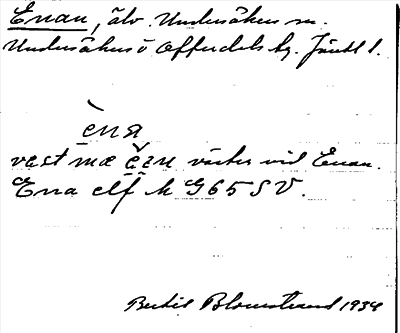 Enan, älv. Undersåkers sn.
Undersåkers o Offerdals tg. Jämtl l.
èna
väst mæ ĕnn väster vid Enan.
Ena elf k G65SV.
Bertil Blomstrand 1934